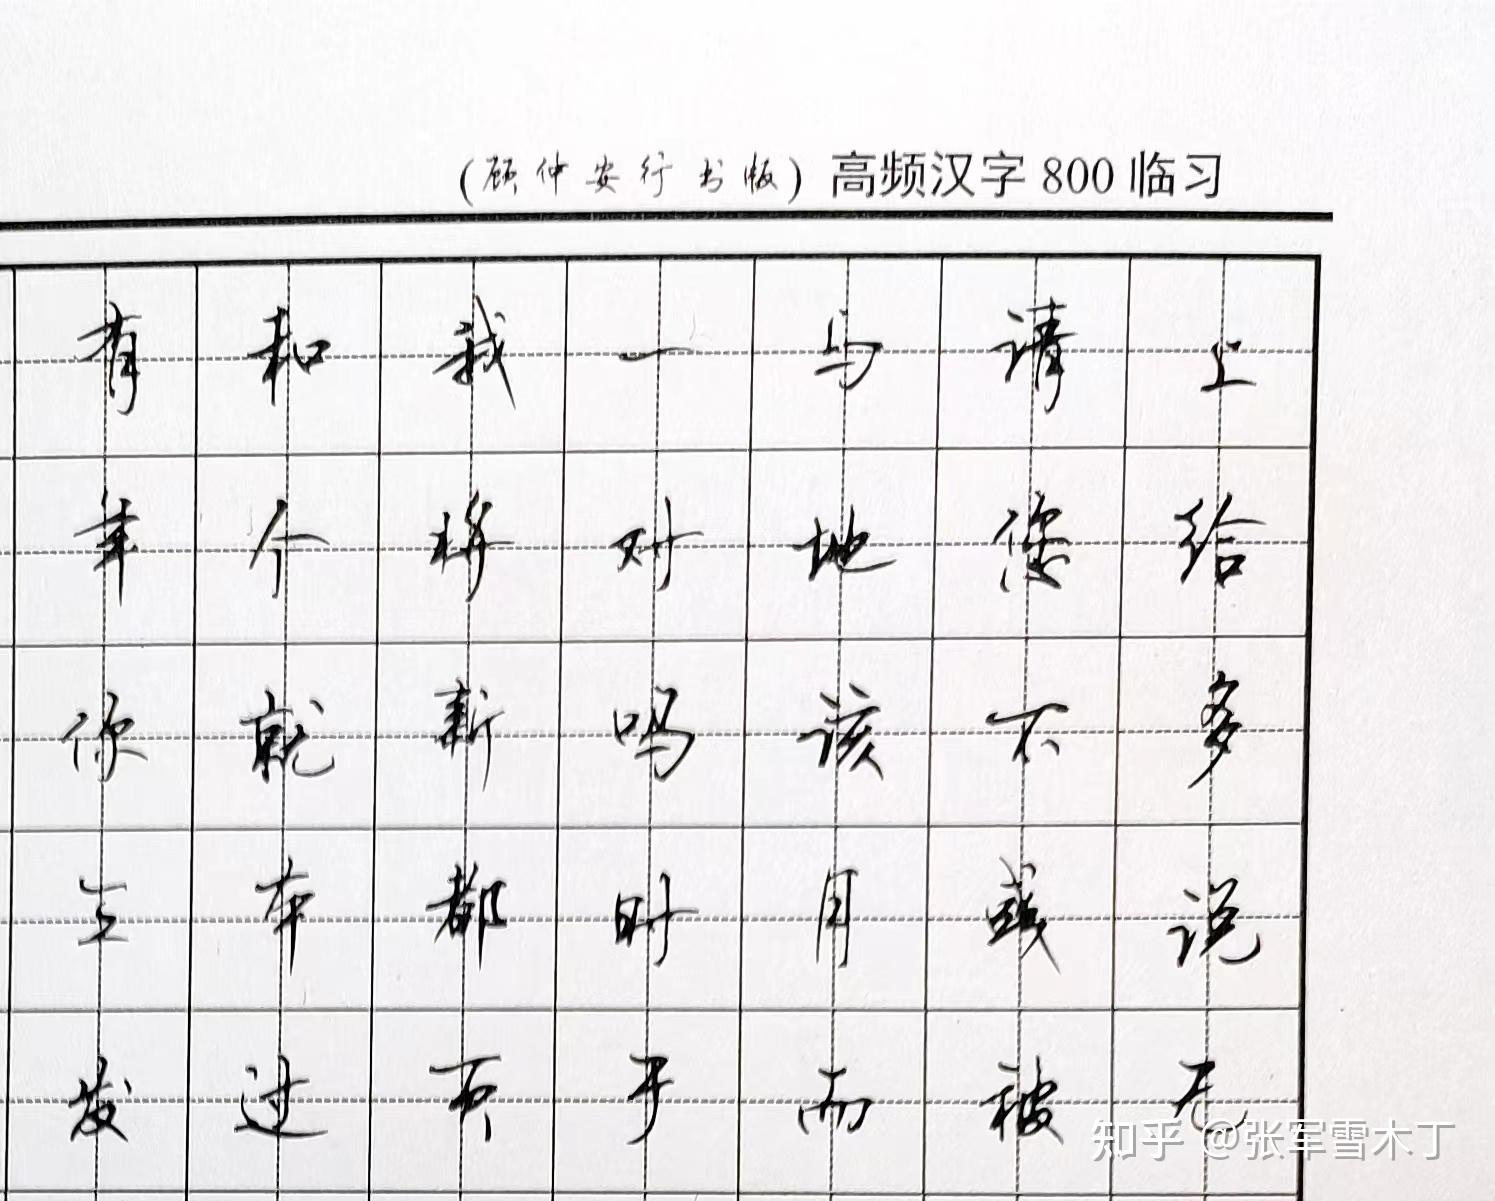 (顾仲安行书版) 高频汉字 800 临习
有和我一与请上
年个将对地您给
你就新吗该不多
工本都时月或说
发过页于而被无
知乎 @张军雪木丁